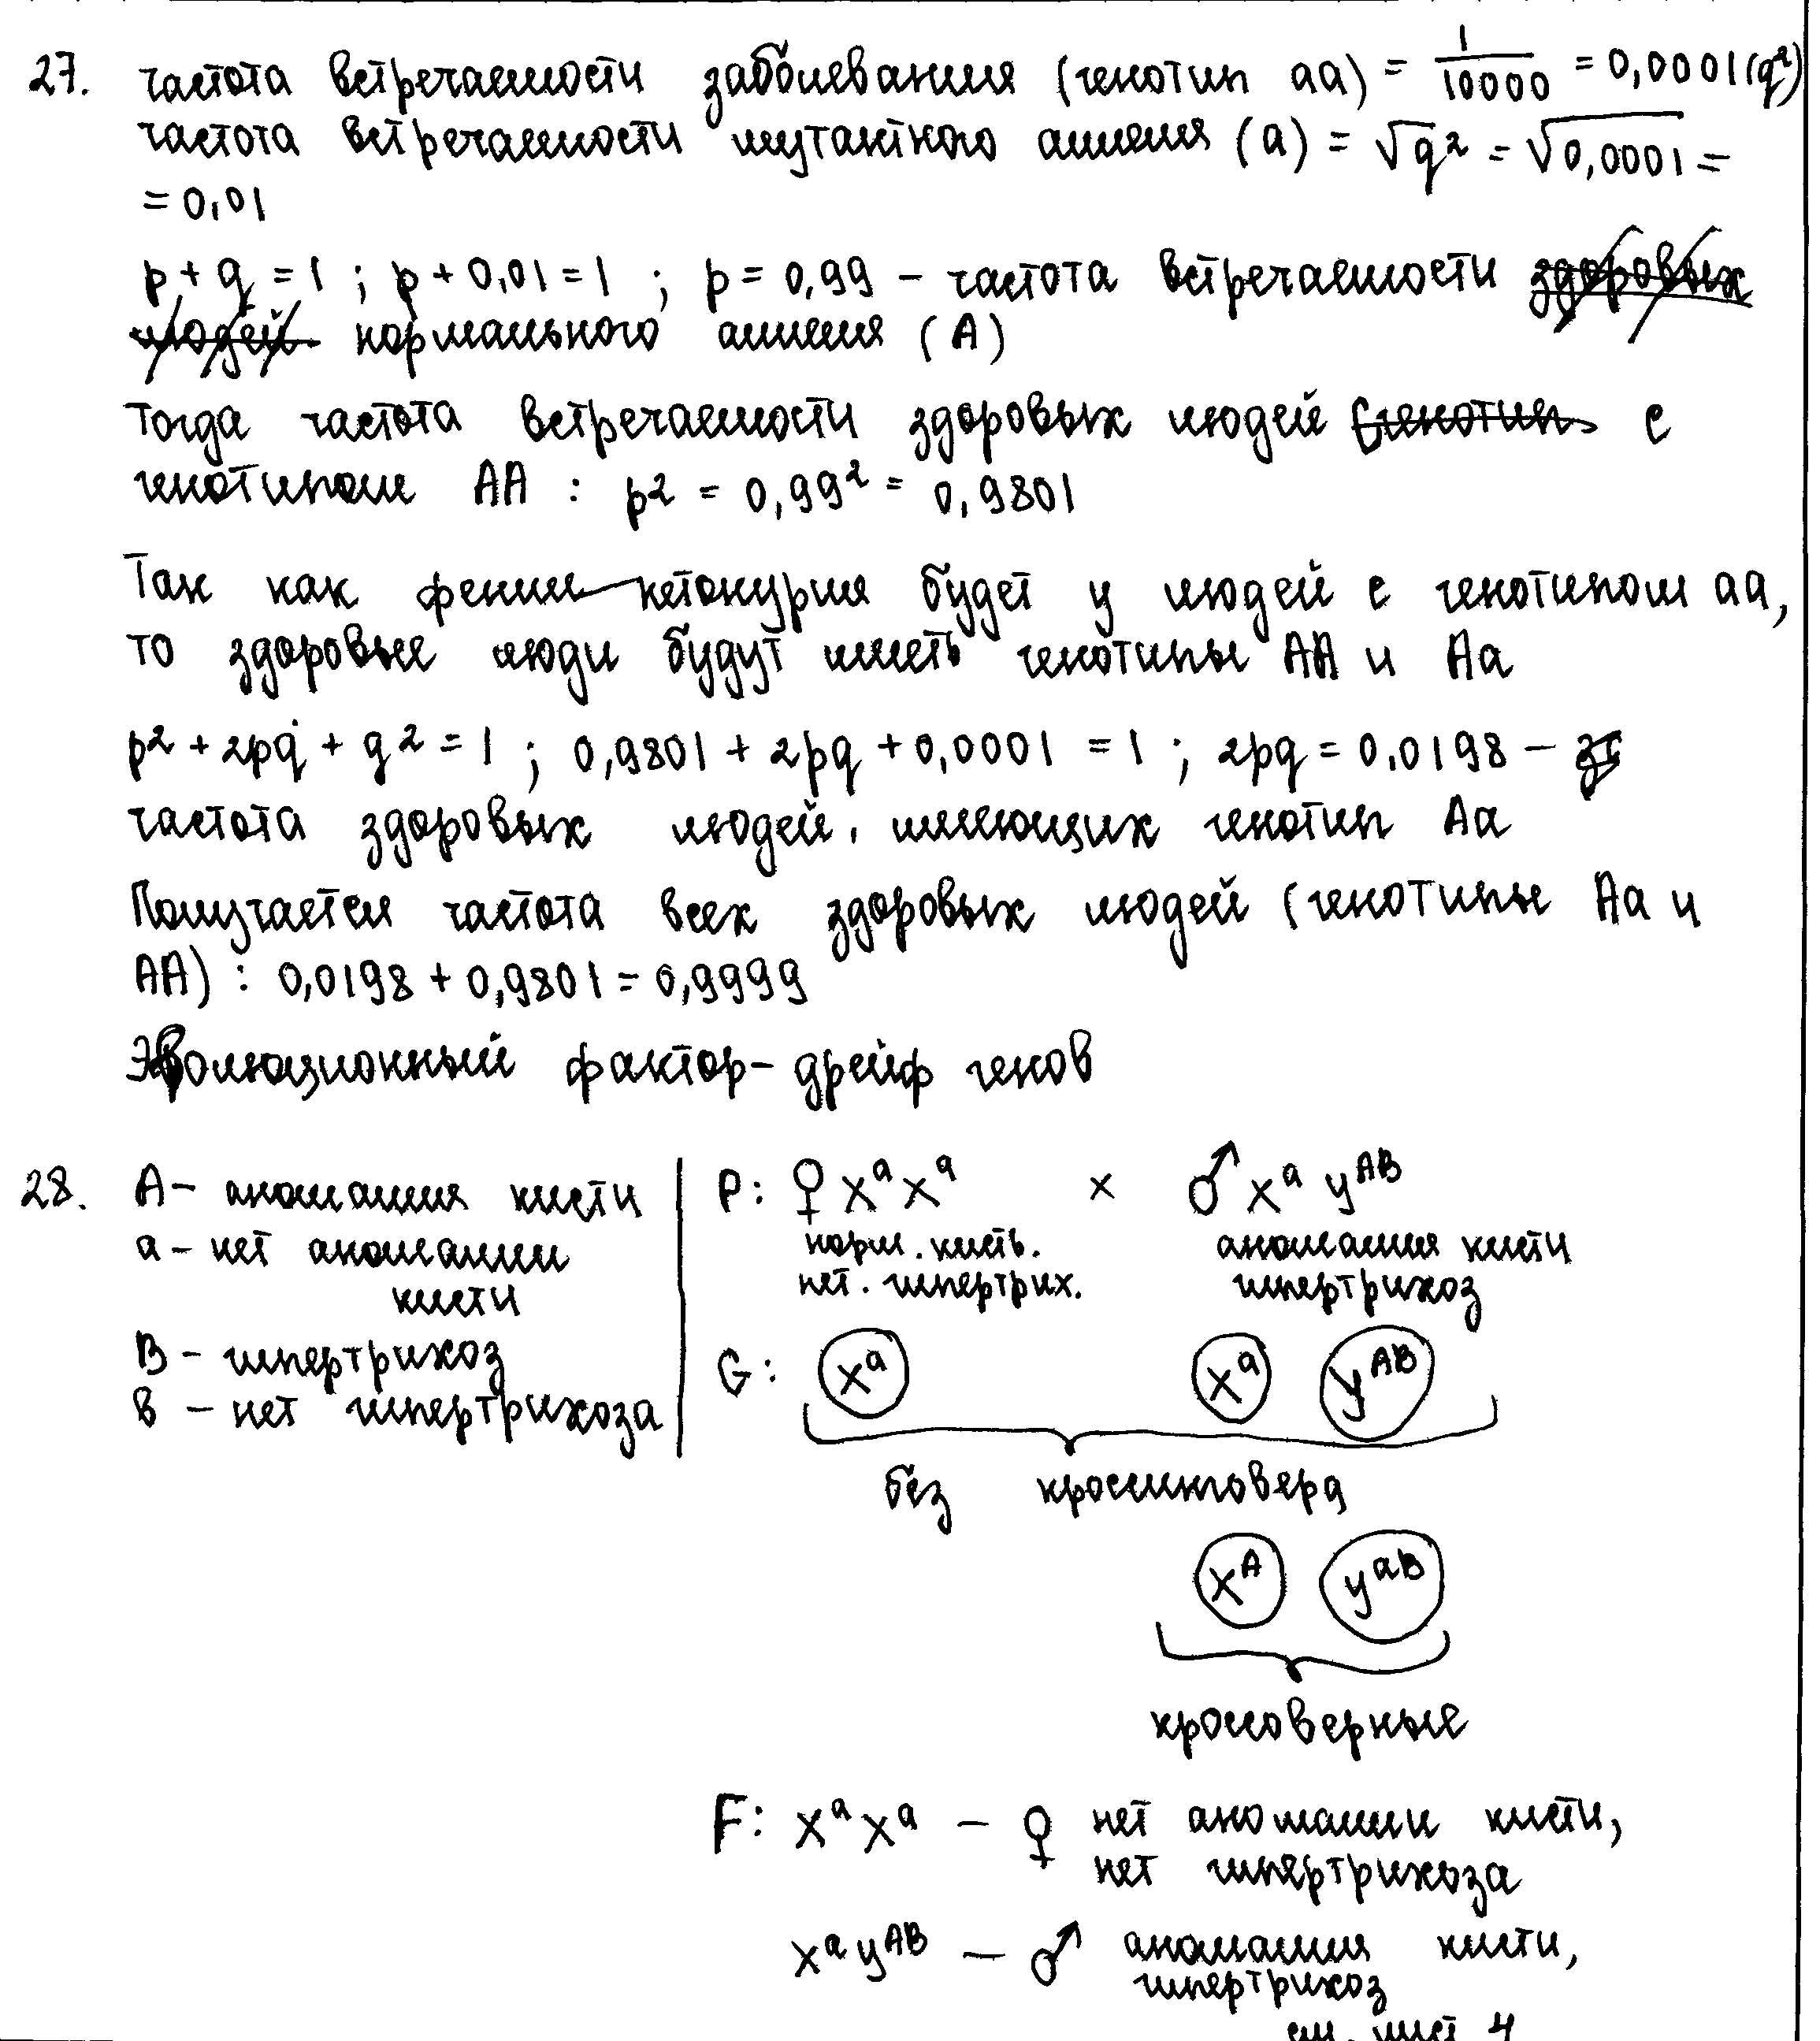 27. частота встречаемости заболевания (генотип аа) = 1/10000 = 0,0001 (q²)
частота встречаемости мутантного аллеля (а) = √q² = √0,0001 =
= 0,01
p + q = 1 ; p + 0,01 = 1 ; p = 0,99 – частота встречаемости здоровых
людей нормального аллеля (А)
Тогда частота встречаемости здоровых людей (генотип с
генотипом АА : p² = 0,99² = 0,9801
Так как фенилкетонурия будет у людей с генотипом аа,
то здоровые люди будут иметь генотипы АА и Аа
p² + 2pq + q² = 1 ; 0,9801 + 2pq + 0,0001 = 1 ; 2pq = 0,0198 –
частота здоровых людей, имеющих генотип Аа
Получается частота всех здоровых людей (генотипы Аа и
АА) : 0,0198 + 0,9801 = 0,9999
Эволюционный фактор – дрейф генов
28. А – аномалия кисти
а – нет аномалии
кисти
В – гипертрихоз
в – нет гипертрихоза
P: ♀ XᵃXᵃ × ♂ Xᵃ Yᴬᴮ
норм. кисть. аномалия кисти
нет. гипертрих. гипертрихоз
G: Xᵃ Xᵃ Yᴬᴮ
без кроссинговера
Xᴬ Yᵃᴮ
кроссоверные
F: XᵃXᵃ – ♀ нет аномалии кисти,
нет гипертрихоза
XᵃYᴬᴮ – ♂ аномалия кисти,
гипертрихоз
см. лист 4